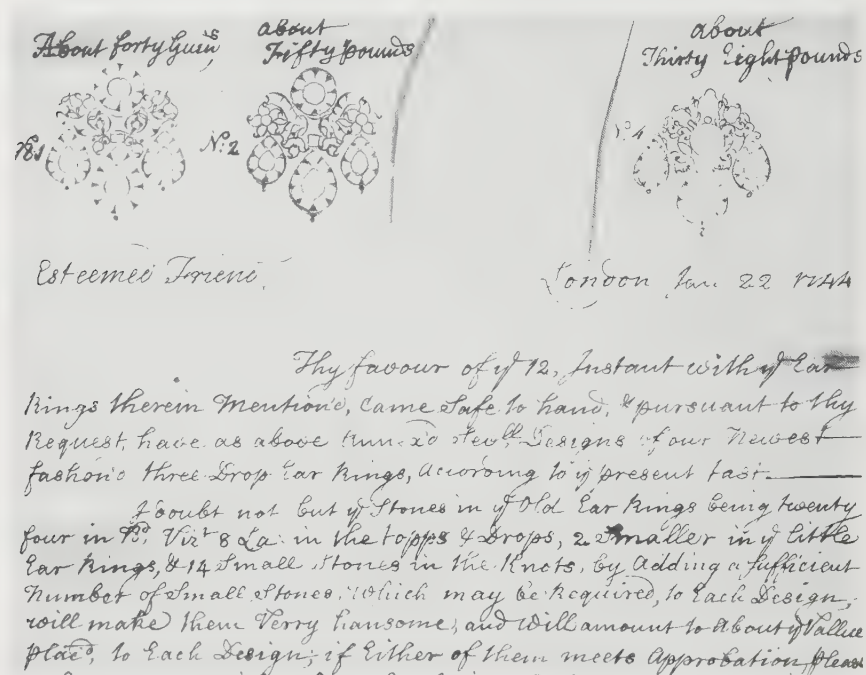 About forty Guin.s
about
Fifty pounds
about
Thirty Eight pounds
No. 1
No. 2
No. 4
Esteemed Friend,
London Jan. 22 1744
Thy favour of ye 12, Instant with ye Ear
Rings therein Mention'd, Came Safe to hand, & pursuant to thy
Request, have as above Sevll. Designs of our Newest
fashon'd three Drop Ear Rings, According to ye present tast.
I doubt not but ye Stones in ye Old Ear Rings being twenty
four in No. Vizt 8 La: in the topps & Drops, 2 Smaller in ye little
Ear Rings, & 14 Small Stones in the Knots, by Adding a sufficient
Number of Small Stones, which may be Required, to Each Design,
will make them Verry hansome, and will amount to About ye Vallue
plac'd, to Each Design; if Either of them meets Approbation, please